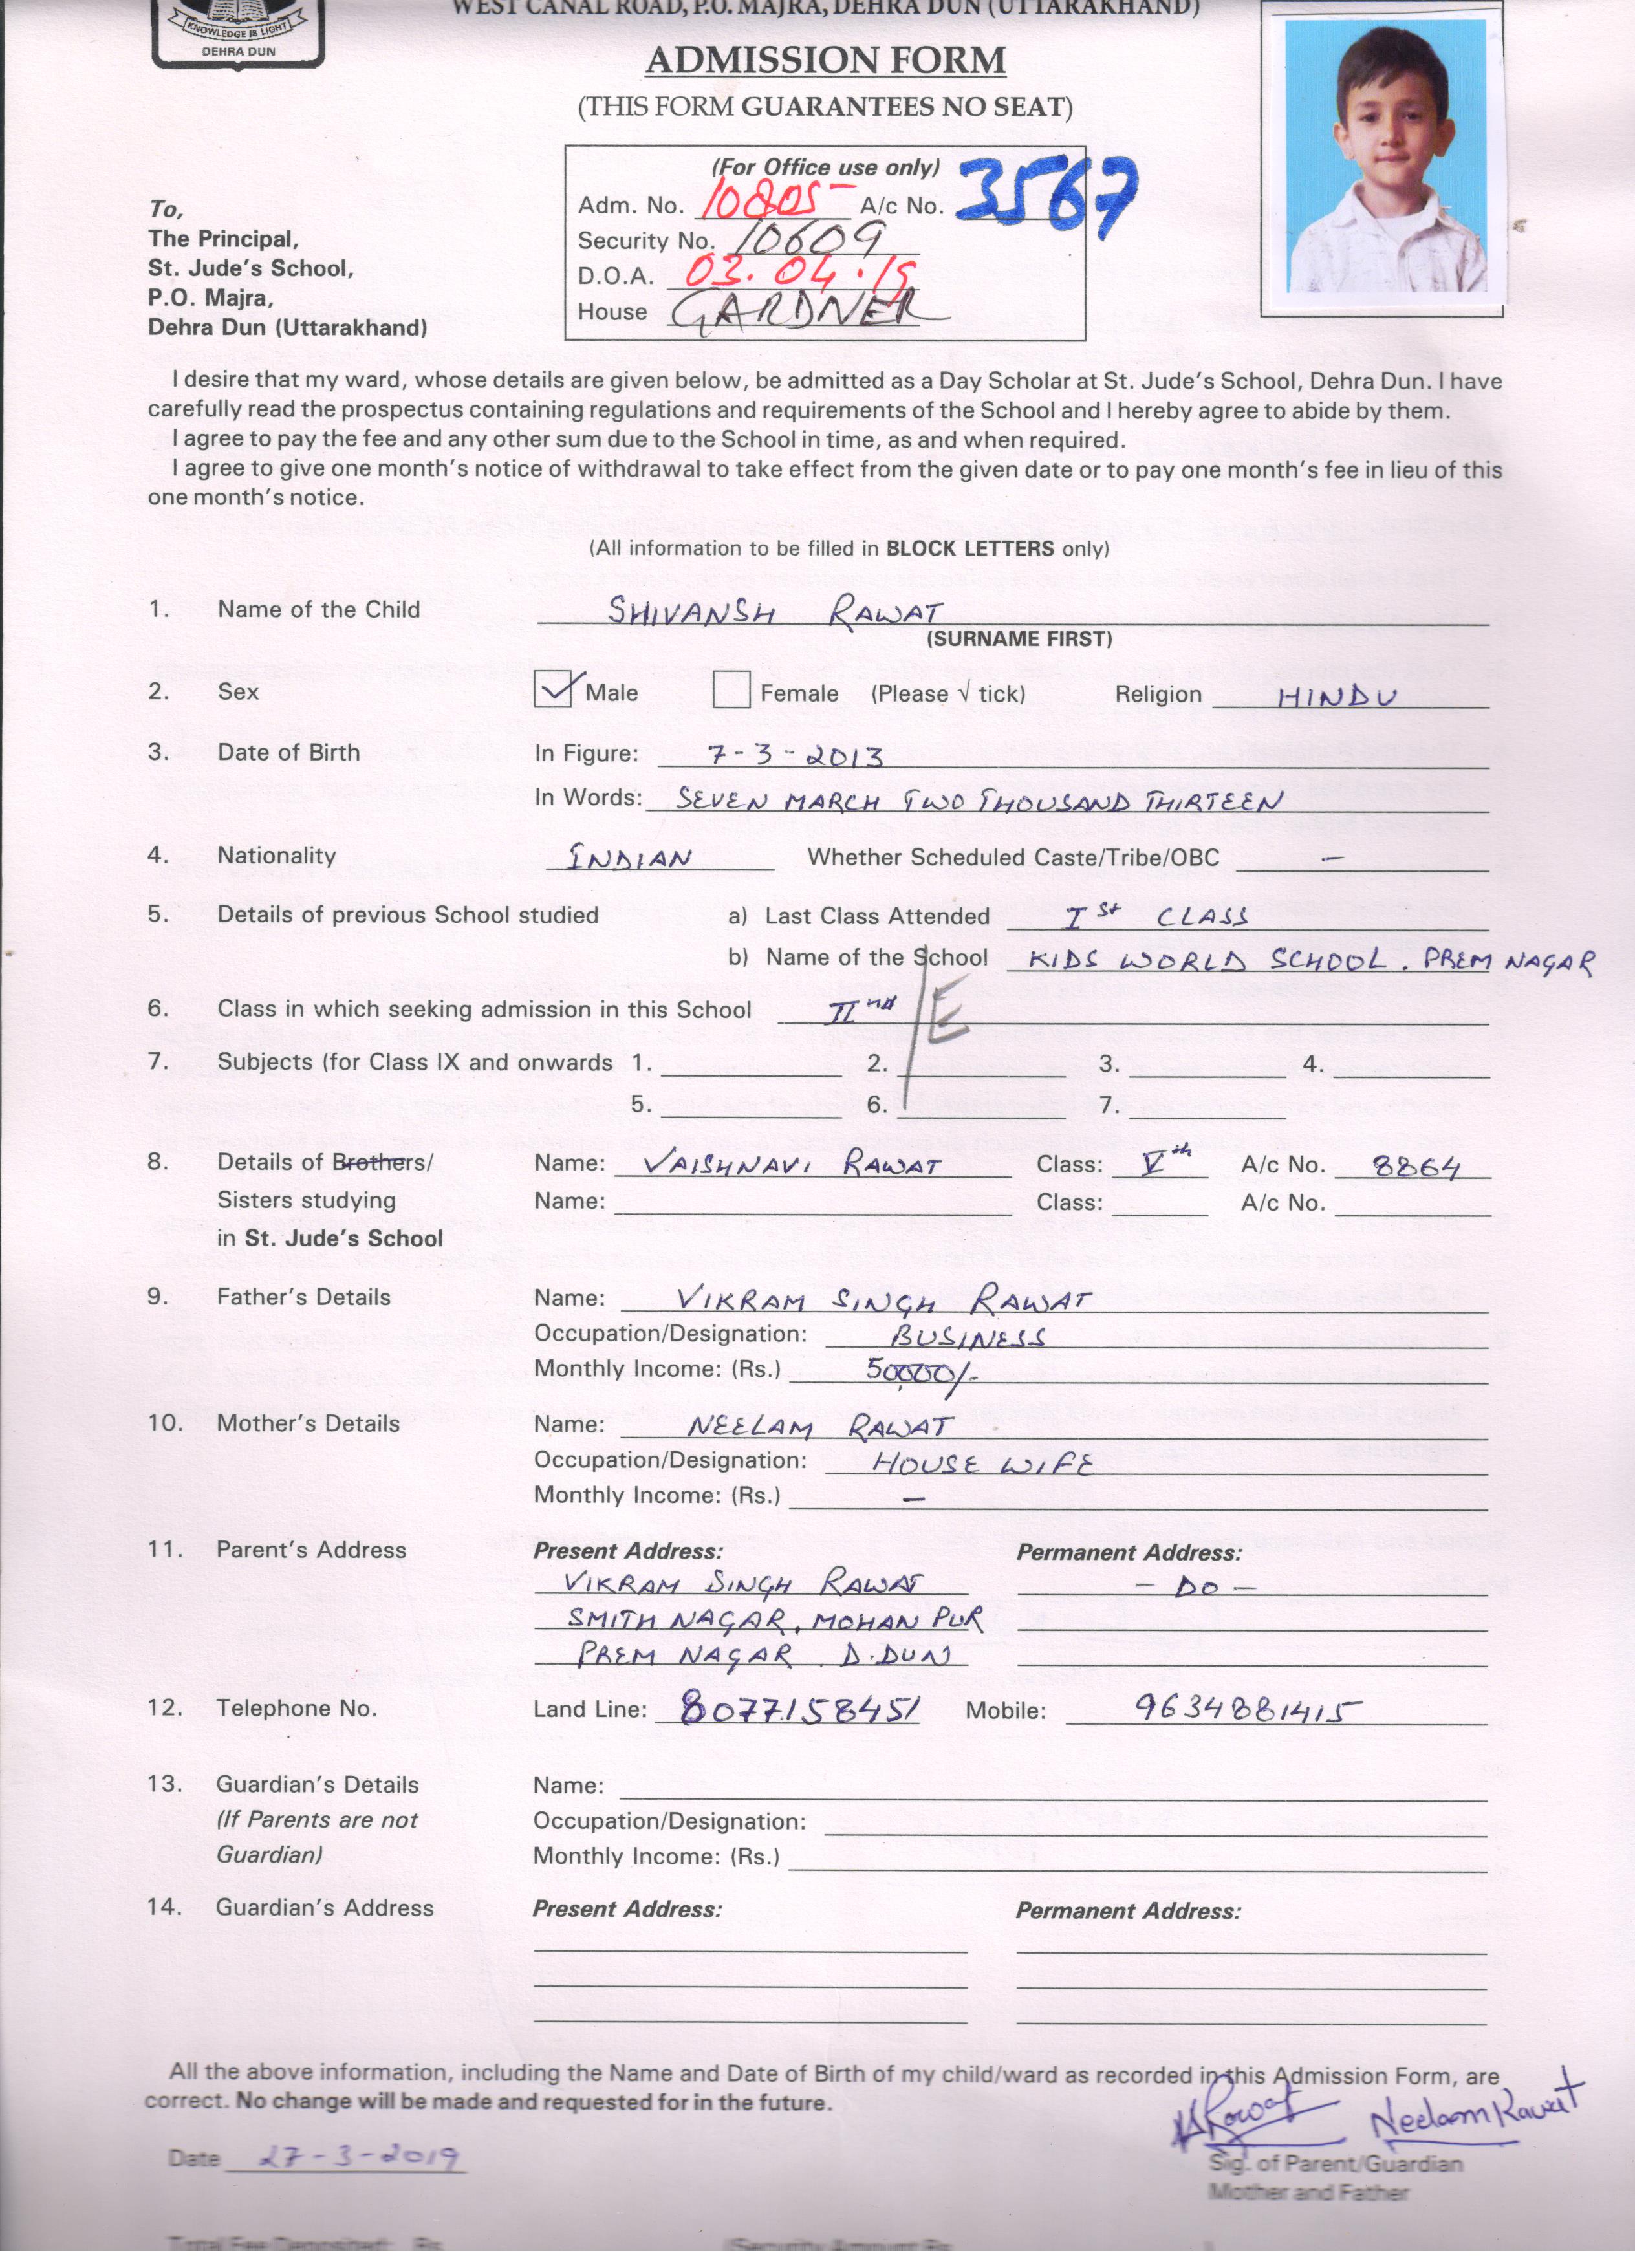 WEST CANAL ROAD, P.O. MAJRA, DEHRA DUN (UTTARAKHAND)
KNOWLEDGE IS LIGHT
DEHRA DUN
ADMISSION FORM
(THIS FORM GUARANTEES NO SEAT)
(For Office use only)
Adm. No. 10805 A/c No. 3567
Security No. 10609
D.O.A. 03.04.19
House GARDNER
To,
The Principal,
St. Jude's School,
P.O. Majra,
Dehra Dun (Uttarakhand)
I desire that my ward, whose details are given below, be admitted as a Day Scholar at St. Jude's School, Dehra Dun. I have
carefully read the prospectus containing regulations and requirements of the School and I hereby agree to abide by them.
I agree to pay the fee and any other sum due to the School in time, as and when required.
I agree to give one month's notice of withdrawal to take effect from the given date or to pay one month's fee in lieu of this
one month's notice.
(All information to be filled in BLOCK LETTERS only)
1. Name of the Child SHIVANSH RAWAT
(SURNAME FIRST)
2. Sex Male Female (Please √ tick) Religion HINDU
3. Date of Birth In Figure: 7-3-2013
In Words: SEVEN MARCH TWO THOUSAND THIRTEEN
4. Nationality INDIAN Whether Scheduled Caste/Tribe/OBC –
5. Details of previous School studied a) Last Class Attended Ist CLASS
b) Name of the School KIDS WORLD SCHOOL. PREM NAGAR
6. Class in which seeking admission in this School IInd /E
7. Subjects (for Class IX and onwards 1. 2. 3. 4.
5. 6. 7.
8. Details of Brothers/ Name: VAISHNAVI RAWAT Class: Vth A/c No. 8864
Sisters studying Name: Class: A/c No.
in St. Jude's School
9. Father's Details Name: VIKRAM SINGH RAWAT
Occupation/Designation: BUSINESS
Monthly Income: (Rs.) 50000/-
10. Mother's Details Name: NEELAM RAWAT
Occupation/Designation: HOUSE WIFE
Monthly Income: (Rs.) –
11. Parent's Address Present Address: Permanent Address:
VIKRAM SINGH RAWAT - DO -
SMITH NAGAR, MOHAN PUR
PREM NAGAR D.DUN
12. Telephone No. Land Line: 8077158451 Mobile: 9634881415
13. Guardian's Details Name:
(If Parents are not Occupation/Designation:
Guardian) Monthly Income: (Rs.)
14. Guardian's Address Present Address: Permanent Address:
All the above information, including the Name and Date of Birth of my child/ward as recorded in this Admission Form, are
correct. No change will be made and requested for in the future.
Rawat Neelam Rawat
Date 27-3-2019
Sig. of Parent/Guardian
Mother and Father
Total Fee Deposited: Rs. (Security Amount Rs.